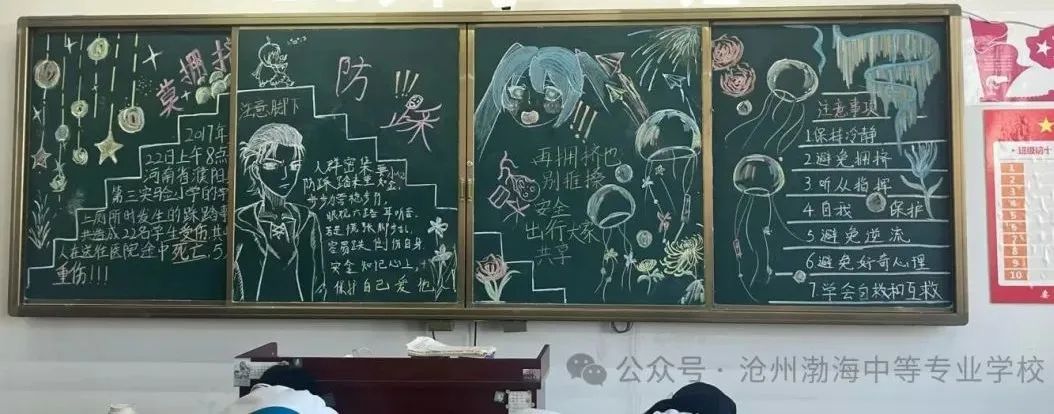 莫拥挤
2017年
22日上午8点
河南省濮阳
第三实验小学的学
上厕所时发生的踩踏事
共造成22名学生受伤其
人在送往医院途中死亡,5
重伤!!!
注意脚下
防
!!!
踩
人群密集要小心
防踩踏未曾
眼观六路耳听音
容易跌倒伤自身
安全知识记心上,
保护自己爱他
!!!
再拥挤也
别推搡
安全
出行大家
共享
注意事项
1.保持冷静
2.避免拥挤
3.听从指挥
4.自我保护
5.避免逆流
6.避免好奇心理
7.学会自救和互救
公众号·沧州渤海中等专业学校